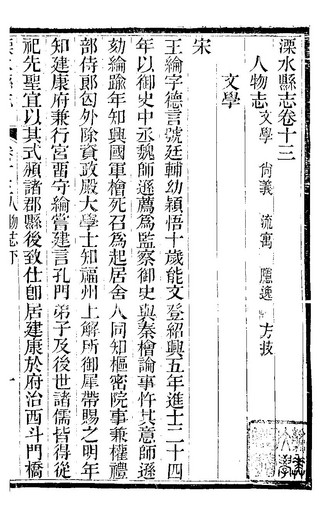 溧水縣志卷十三
人物志 文學 尙義 流寓 隱逸 方技
文學
宋
王綸字德言號廷輔幼穎悟十歲能文登紹興五年進士二十四
年以御史中丞魏師遜薦爲監察御史與秦檜論事忤其意師遜
劾綸踰年知興國軍檜死召爲起居舍人同知樞密院事兼權禮
部侍郎匃外除資政殿大學士知福州上解所御犀帶賜之明年
知建康府兼行宮畱守綸嘗建言孔門弟子及後世諸儒皆得從
祀先聖宜以其式頒諸郡縣後致仕卽居建康於府治西斗門橋
人物志下
一